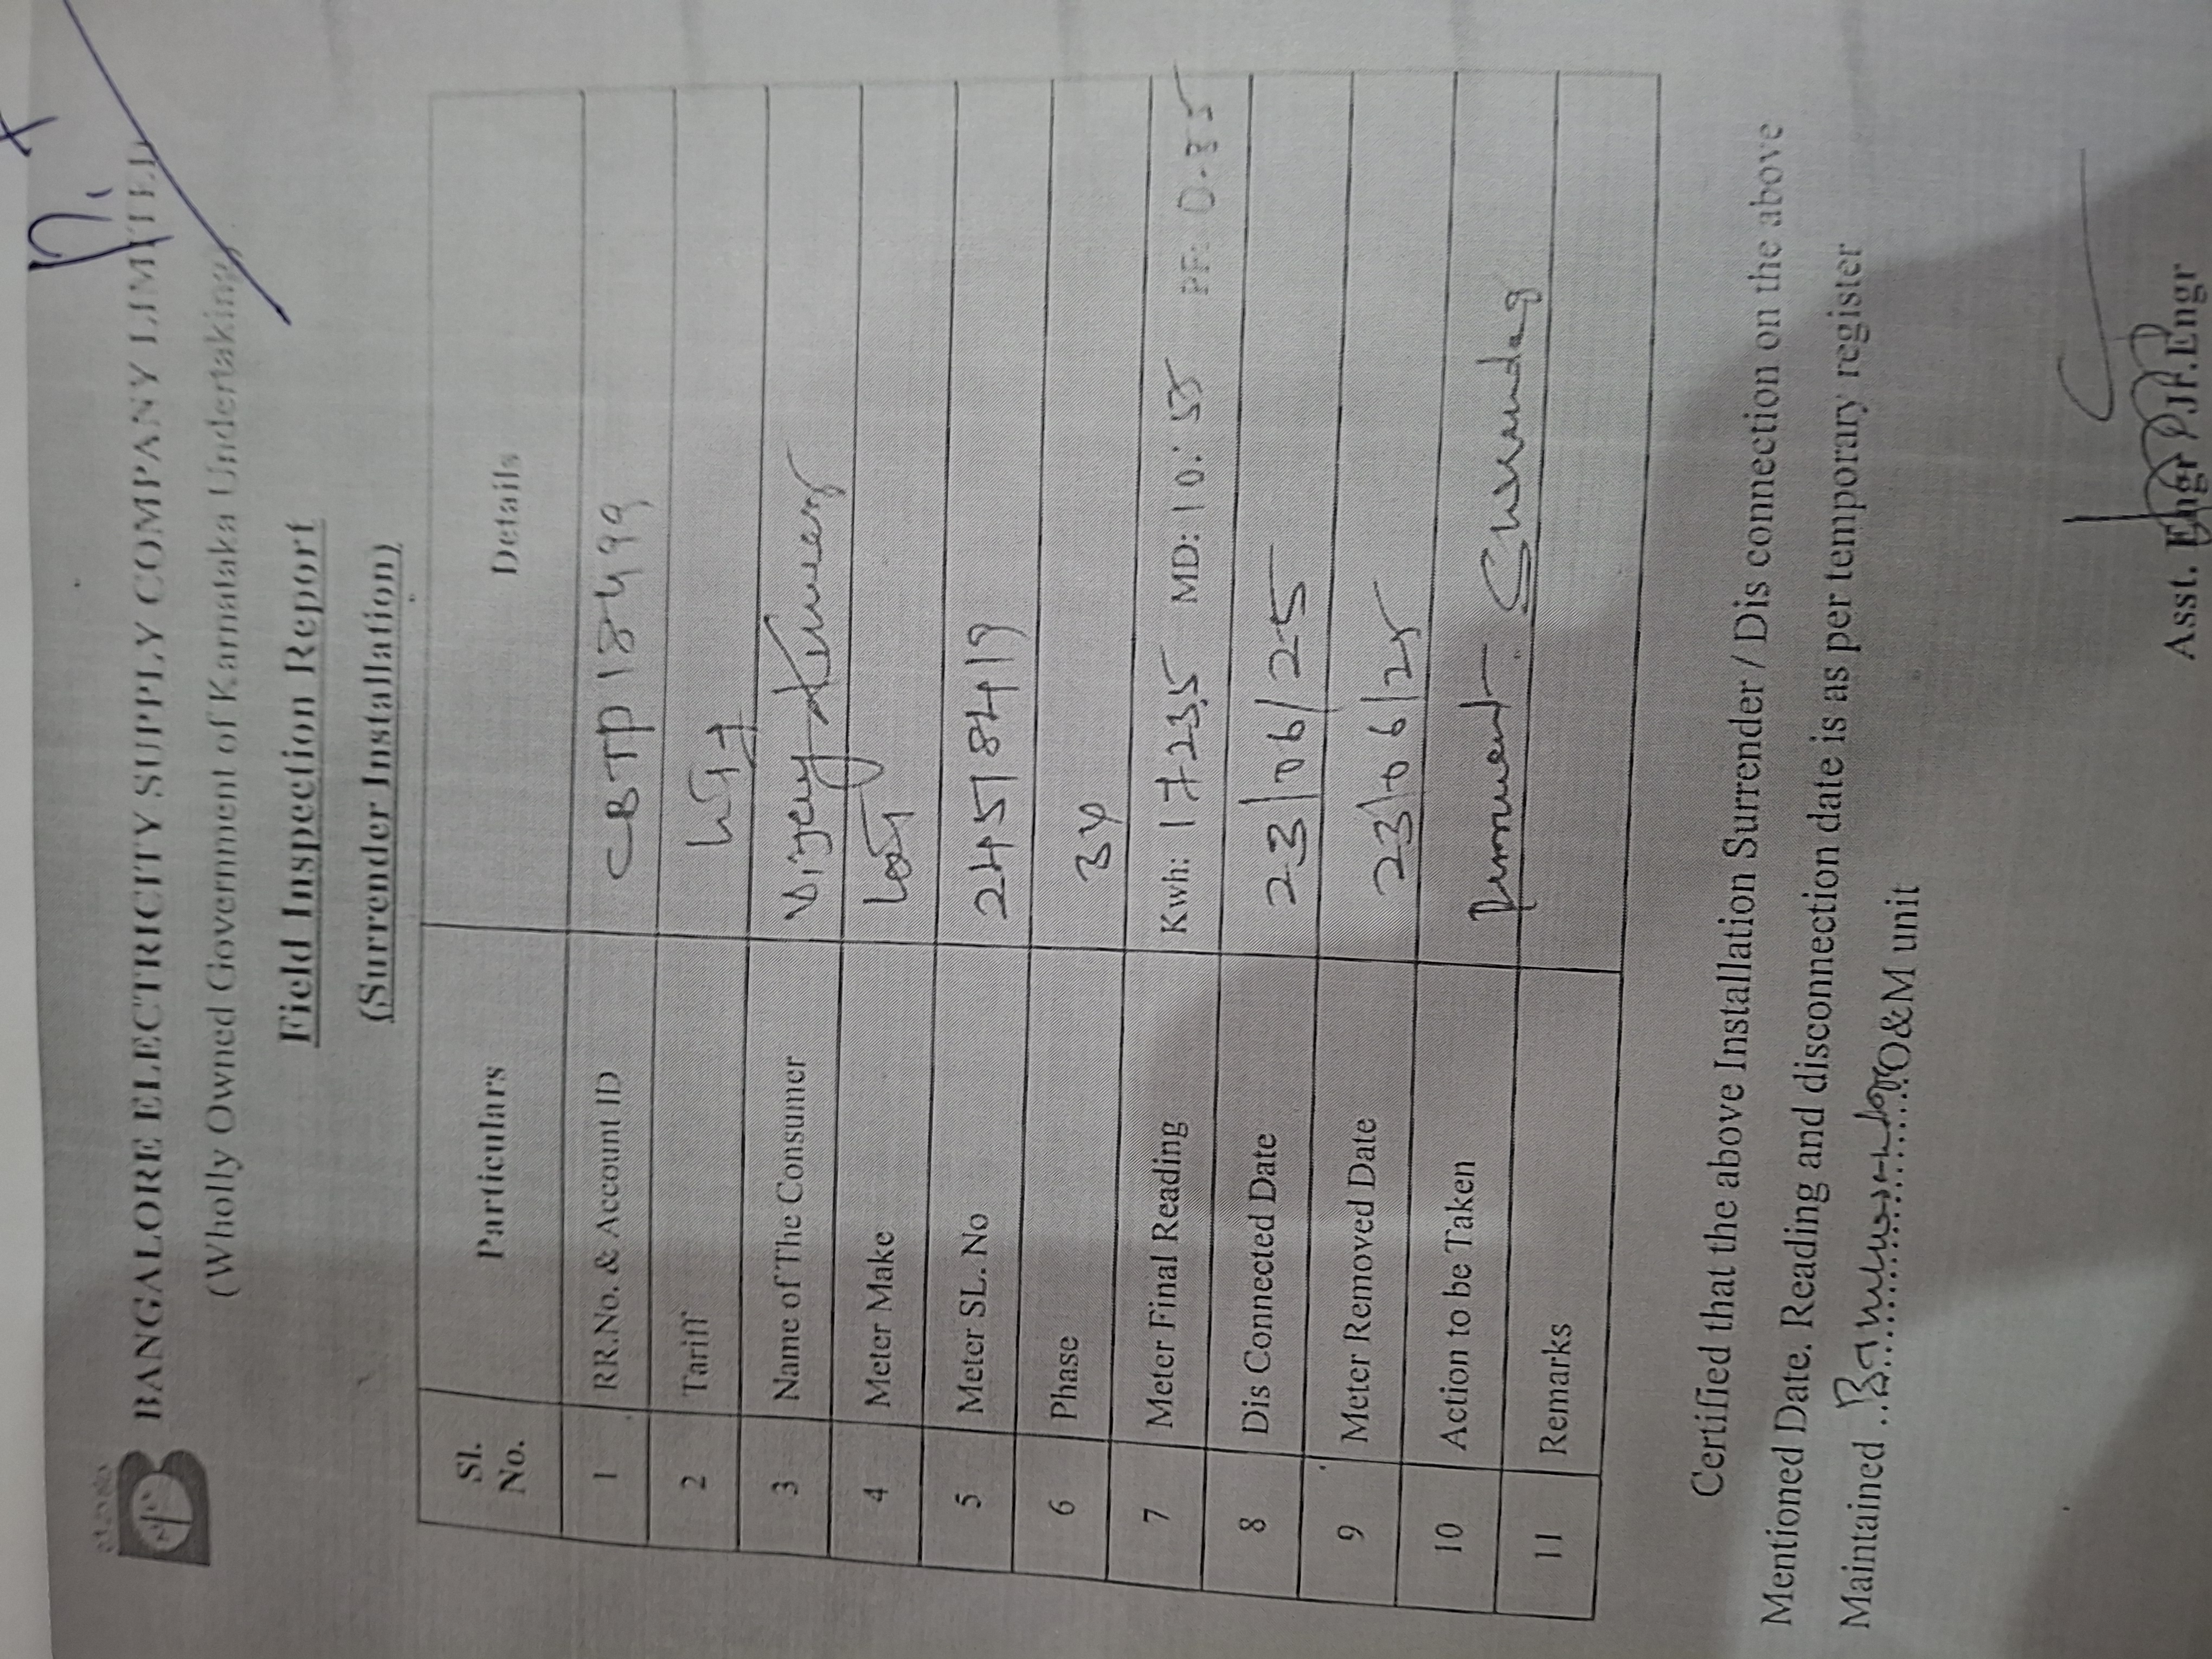 BANGALORE ELECTRICITY SUPPLY COMPANY LIMITED
(Wholly Owned Government of Karnataka Undertaking)
Field Inspection Report
(Surrender Installation)
Sl. No. Particulars Details
1 RR.No. & Account ID CBTP18499
2 Tariff
3 Name of The Consumer Vijay Kumar
4 Meter Make
5 Meter SL. No 24518419
6 Phase 3φ
7 Meter Final Reading Kwh: 17235 MD: 10.55 PF: 0.85
8 Dis Connected Date 23/06/25
9 Meter Removed Date 23/06/25
10 Action to be Taken
11 Remarks
Certified that the above Installation Surrender / Dis connection on the above
Mentioned Date. Reading and disconnection date is as per temporary register
Maintained .......... O&M unit
Asst. Engr / Jr.Engr